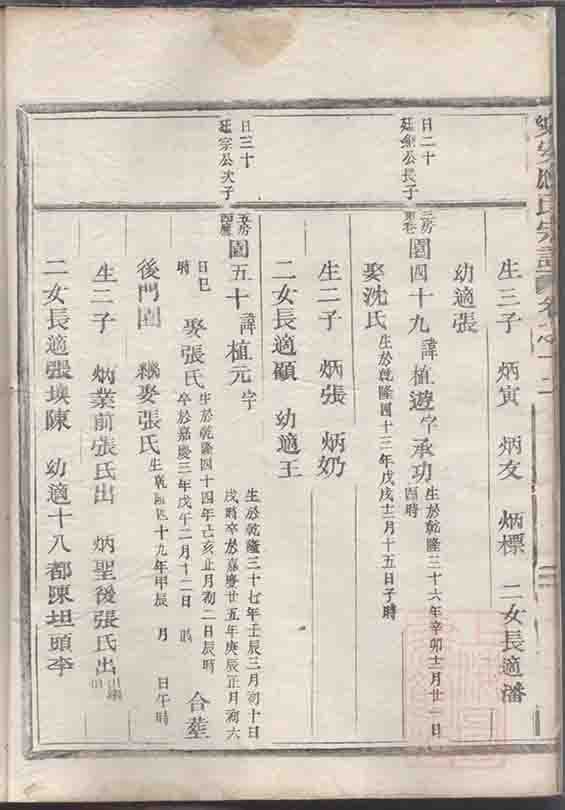 生三子 炳寅 炳友 炳標 二女長適潘
幼適張
日二十
廷 公長子
三房
園四十九 諱植遊 字承功 生於乾隆三十六年辛卯十二月廿二日
酉時
娶沈氏 生於乾隆四十三年戊戌十二月十五日子時
生二子 炳張 炳奶
二女長適顧 幼適王
日三十
廷宗公次子
五房
園五十 諱植元 字 生於乾隆三十七年壬辰三月初十日
戌時卒於嘉慶廿五年庚辰正月初六
日巳
時 娶張氏 生於乾隆四十四年己亥正月初二日辰時
卒於嘉慶三年戊午二月十二日 時 合塟
後門園 繼娶張氏 生乾隆四十九年甲辰 月 日午時
生二子 炳業前張氏出 炳聖後張氏出
二女長適張墺陳 幼適十八都陳坦頭李